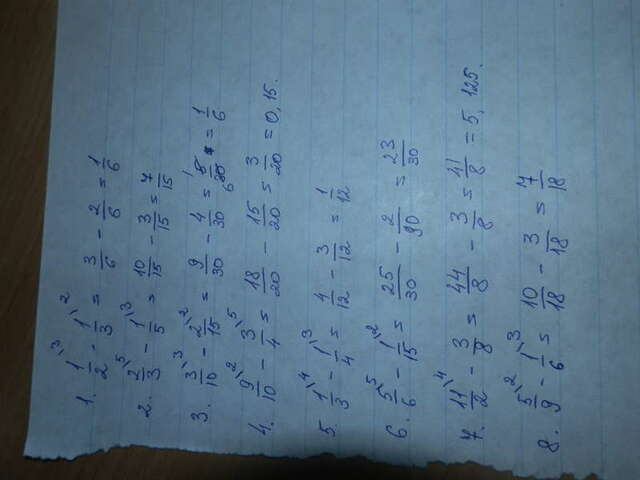 1. 1/2\3 - 1/3\2 = 3/6 - 2/6 = 1/6
2. 2/3\5 - 1/5\3 = 10/15 - 3/15 = 7/15
3. 3/10\3 - 2/15\2 = 9/30 - 4/30 = = 1/6
4. 9/10\2 - 3/4\5 = 18/20 - 15/20 = 3/20 = 0,15.
5. 1/3\4 - 1/4\3 = 4/12 - 3/12 = 1/12
6. 5/6\5 - 1/15\2 = 25/30 - 2/90 = 23/30
7. 11/2\4 - 3/8 = 44/8 - 3/8 = 41/8 = 5,125.
8. 5/9\2 - 1/6\3 = 10/18 - 3/18 = 7/18